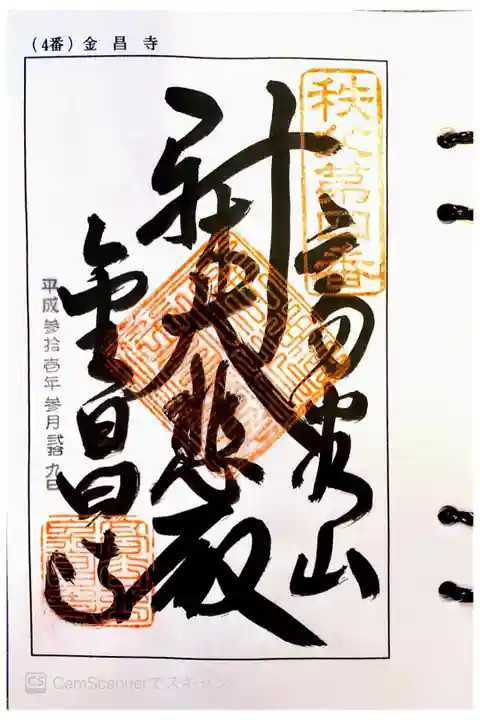 (4番)金昌寺
秩父第四番
高谷山
大悲殿
金昌寺
平成参拾壱年参月弐拾九日
CS CamScannerでスキャン